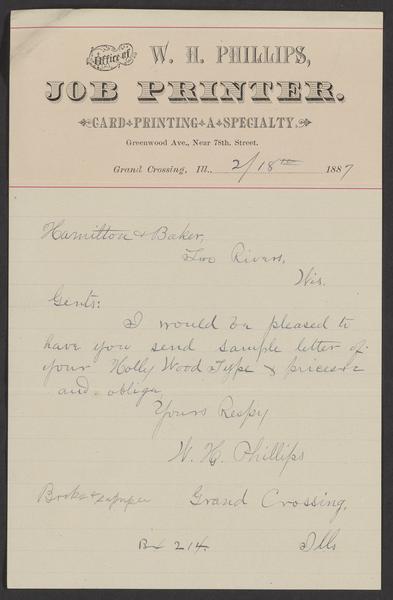 Office of W. H. PHILLIPS,
JOB PRINTER.
CARD PRINTING A SPECIALTY.
Greenwood Ave., Near 78th. Street.
Grand Crossing, Ill., 2/18th 1887
Hamilton & Baker,
Two Rivers,
Wis.
Gents:
I would be pleased to
have you send sample letter of
your Holly Wood Type & prices
and oblige
Yours Respy
W. H. Phillips
Books & paper
Grand Crossing,
Bx 214. Ills